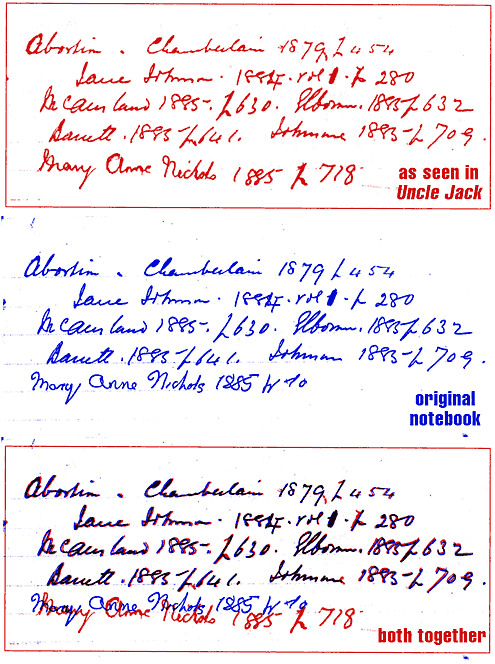 Abortin. Chamberlain 1879 p 454
Jane Johnson. 1884. vol 1. p 280
McCausland 1885. p 630. 1885 p 632
Barrett. 1885 p 641. Johnson 1885 p 709.
Mary Anne Nichols 1885 p 718
as seen in
Uncle Jack
Abortin. Chamberlain 1879 p 454
Jane Johnson. 1884. vol 1. p 280
McCausland 1885. p 630. 1885 p 632
Barrett. 1885 p 641. Johnson 1885 p 709.
Mary Anne Nichols 1885
original
notebook
Abortin. Chamberlain 1879 p 454
Jane Johnson. 1884. vol 1. p 280
McCausland 1885. p 630. 1885 p 632
Barrett. 1885 p 641. Johnson 1885 p 709.
Mary Anne Nichols 1885
Mary Anne Nichols 1885 p 718
both together